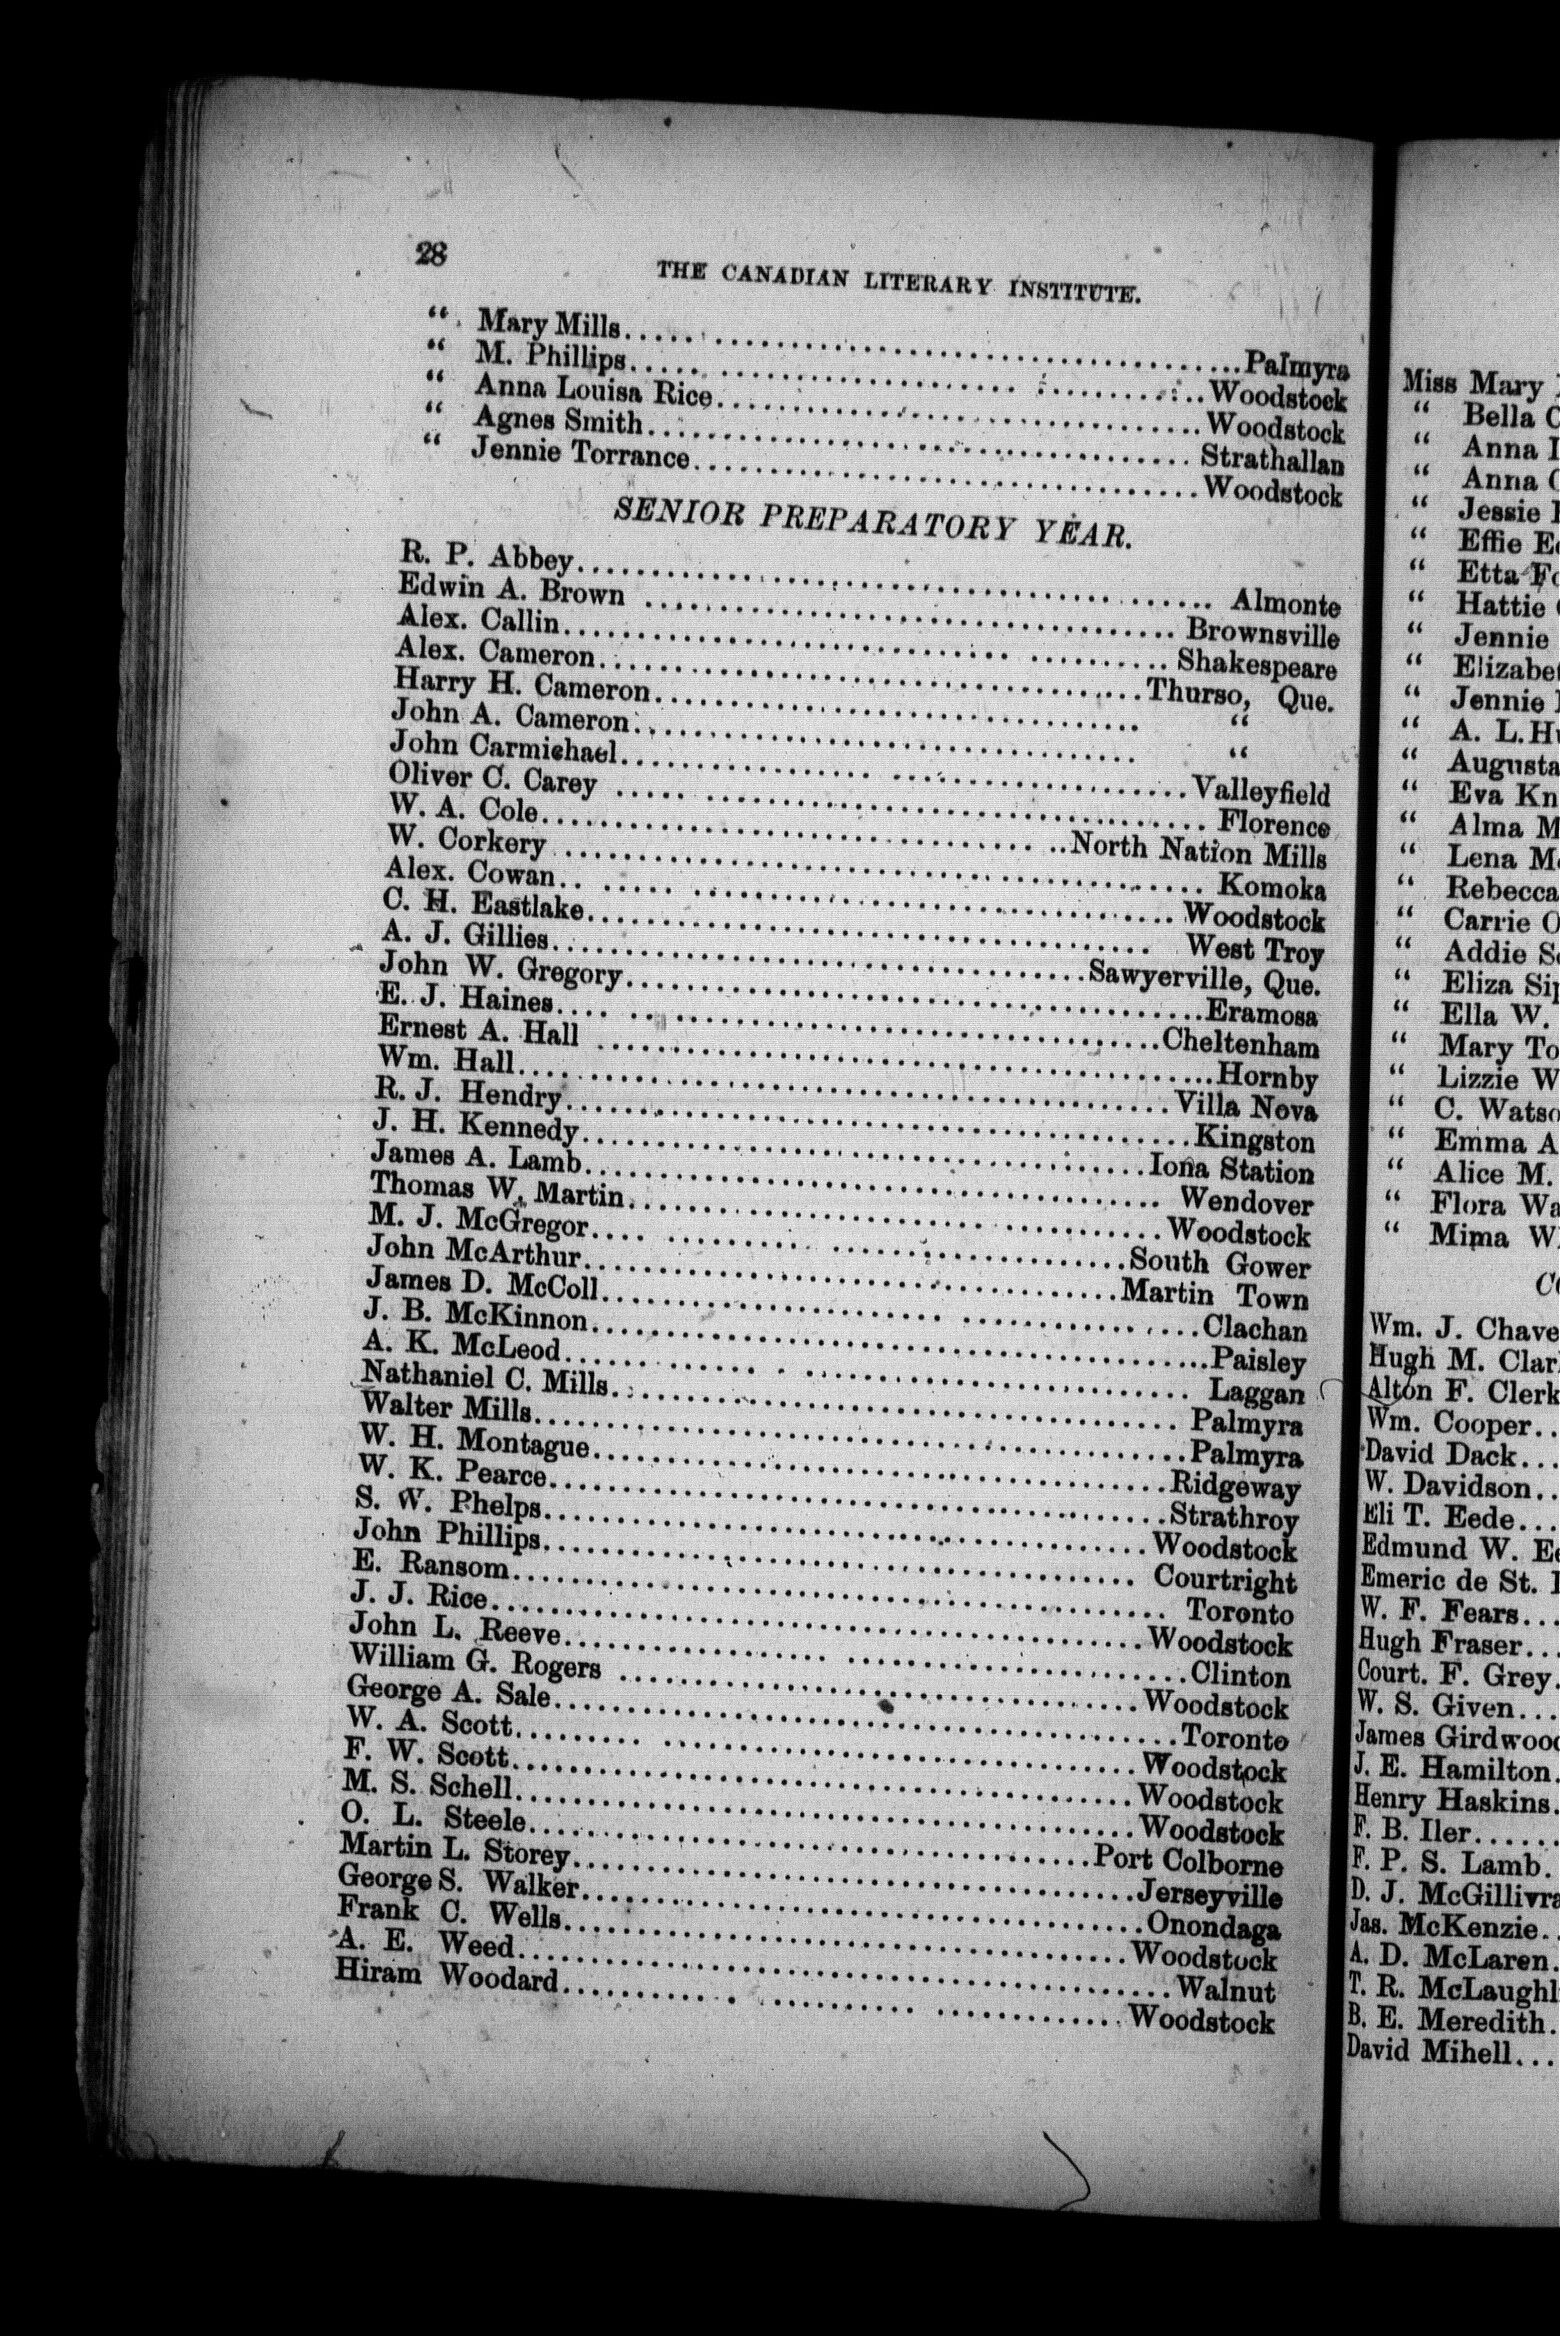 28
THE CANADIAN LITERARY INSTITUTE.
“ Mary Mills..............................Palmyra
“ M. Phillips..............................Woodstock
“ Anna Louisa Rice..............................Woodstock
“ Agnes Smith..............................Strathallan
“ Jennie Torrance..............................Woodstock
SENIOR PREPARATORY YEAR.
R. P. Abbey..............................Almonte
Edwin A. Brown..............................Brownsville
Alex. Callin..............................Shakespeare
Alex. Cameron..............................Thurso, Que.
Harry H. Cameron.............................. “
John A. Cameron.............................. “
John Carmichael..............................Valleyfield
Oliver C. Carey..............................Florence
W. A. Cole..............................North Nation Mills
W. Corkery..............................Komoka
Alex. Cowan..............................Woodstock
C. H. Eastlake..............................West Troy
A. J. Gillies..............................Sawyerville, Que.
John W. Gregory..............................Eramosa
E. J. Haines..............................Cheltenham
Ernest A. Hall..............................Hornby
Wm. Hall..............................Villa Nova
R. J. Hendry..............................Kingston
J. H. Kennedy..............................Iona Station
James A. Lamb..............................Wendover
Thomas W. Martin..............................Woodstock
M. J. McGregor..............................South Gower
John McArthur..............................Martin Town
James D. McColl..............................Clachan
J. B. McKinnon..............................Paisley
A. K. McLeod..............................Laggan
Nathaniel C. Mills..............................Palmyra
Walter Mills..............................Palmyra
W. H. Montague..............................Ridgeway
W. K. Pearce..............................Strathroy
S. W. Phelps..............................Woodstock
John Phillips..............................Courtright
E. Ransom..............................Toronto
J. J. Rice..............................Woodstock
John L. Reeve..............................Clinton
William G. Rogers..............................Woodstock
George A. Sale..............................Toronto
W. A. Scott..............................Woodstock
F. W. Scott..............................Woodstock
M. S. Schell..............................Woodstock
O. L. Steele..............................Port Colborne
Martin L. Storey..............................Jerseyville
George S. Walker..............................Onondaga
Frank C. Wells..............................Woodstock
A. E. Weed..............................Walnut
Hiram Woodard..............................Woodstock
Miss Mary
“ Bella C
“ Anna
“ Anna
“ Jessie
“ Effie E
“ Etta Fo
“ Hattie
“ Jennie
“ Elizabe
“ Jennie
“ A. L. H
“ Augusta
“ Eva Kn
“ Alma M
“ Lena M
“ Rebecca
“ Carrie O
“ Addie S
“ Eliza Si
“ Ella W.
“ Mary To
“ Lizzie W
“ C. Watso
“ Emma A
“ Alice M.
“ Flora Wa
“ Mima W
Wm. J. Chave
Hugh M. Clar
Alton F. Clerk
Wm. Cooper..
David Dack...
W. Davidson..
Eli T. Eede...
Edmund W. E
Emeric de St.
W. F. Fears...
Hugh Fraser...
Court. F. Grey.
W. S. Given...
James Girdwood
J. E. Hamilton.
Henry Haskins.
F. B. Iler......
F. P. S. Lamb.
D. J. McGillivra
Jas. McKenzie..
A. D. McLaren.
T. R. McLaughl
B. E. Meredith.
David Mihell...